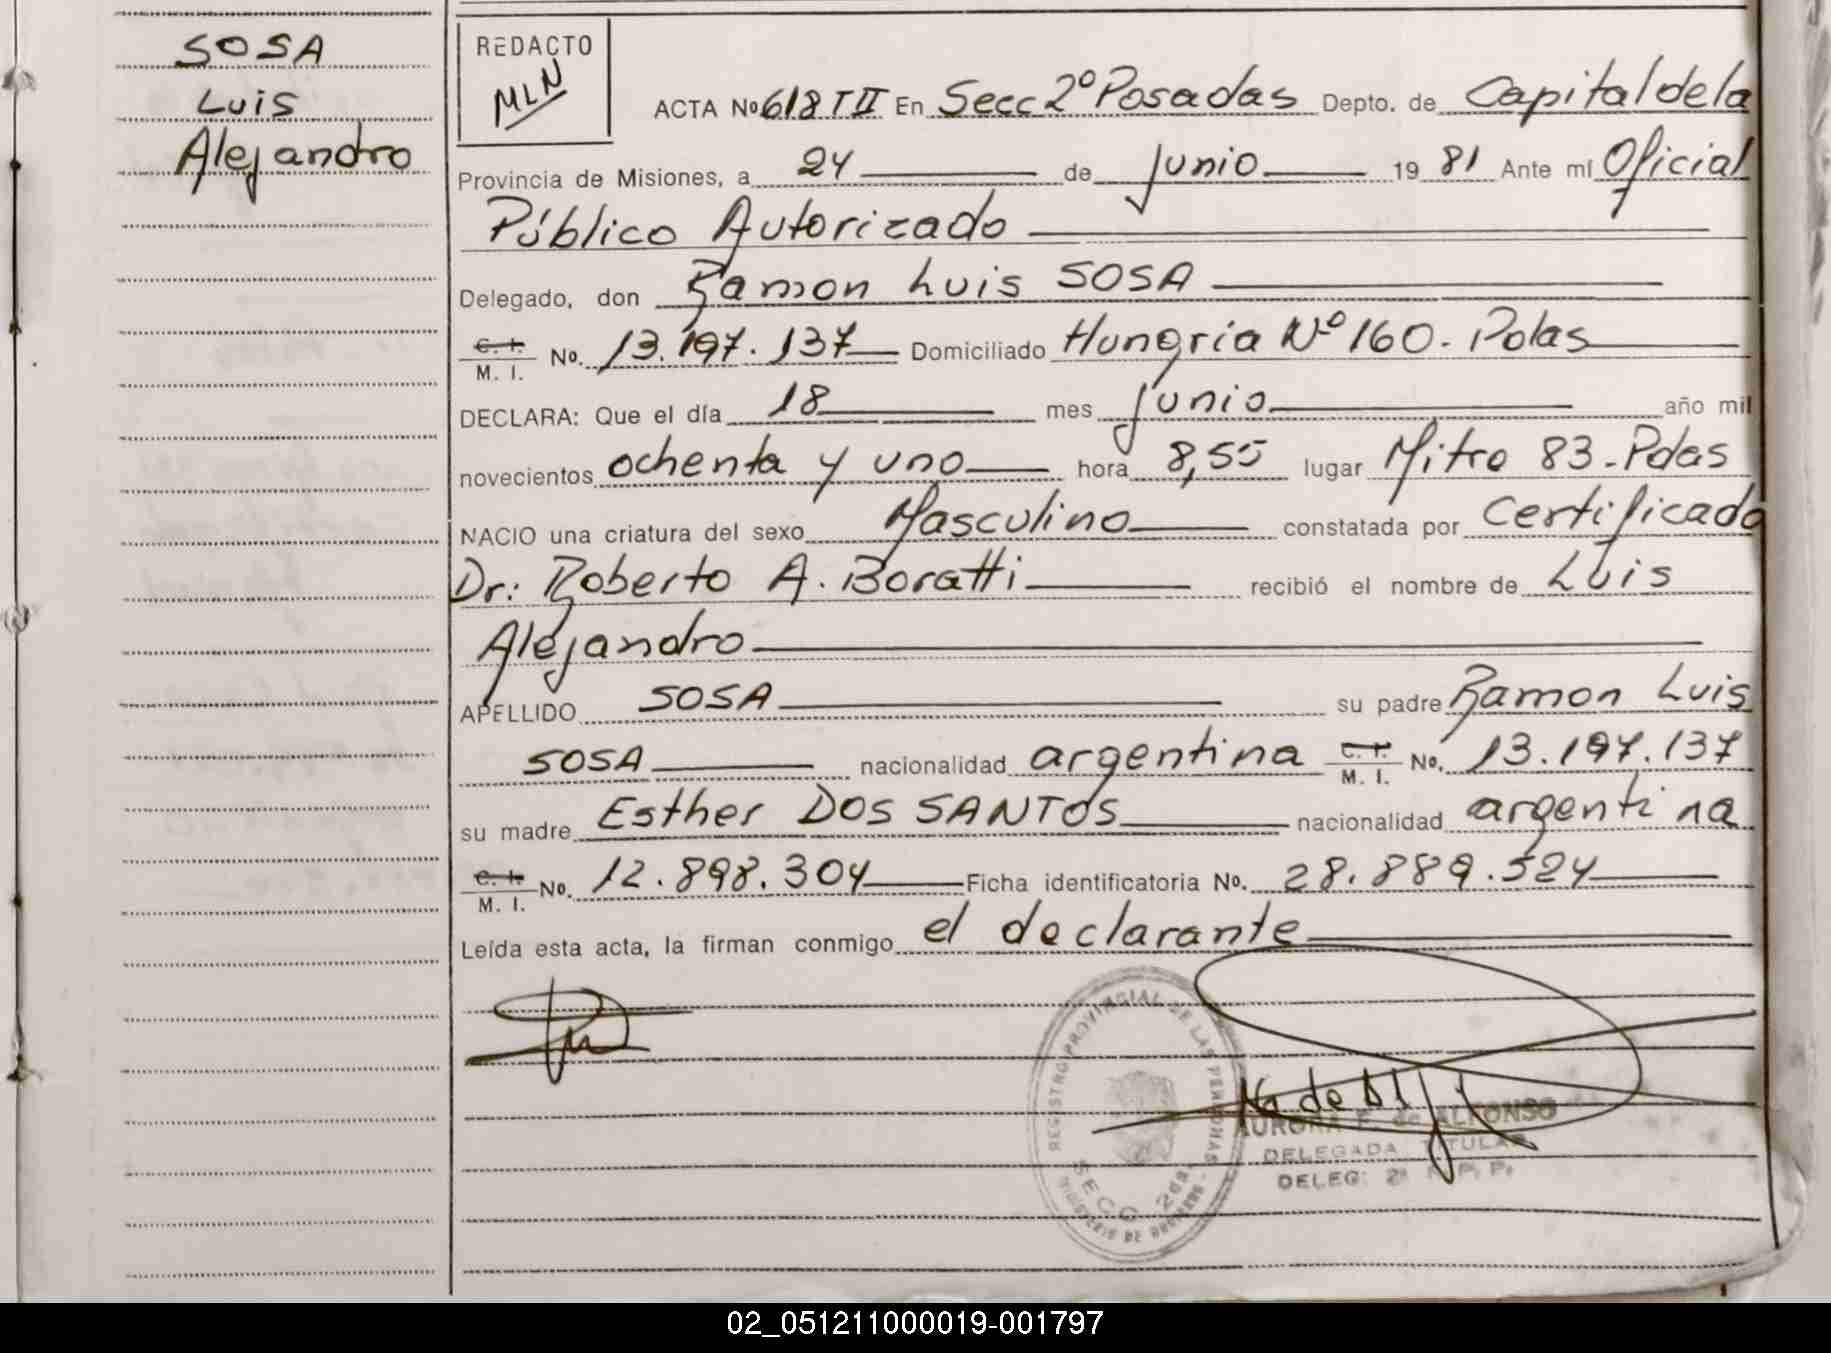 SOSA
Luis
Alejandro
REDACTO
MLN
ACTA Nº 618 T II En Secc 2º Posadas Depto. de Capital de la
Provincia de Misiones, a 24 de Junio 19 81 Ante mí Oficial
Público Autorizado
Delegado, don Ramon Luis SOSA
C. I.
M. I. No. 13.197.137 Domiciliado Hungria Nº 160. Pdas
DECLARA: Que el día 18 mes Junio año mil
novecientos ochenta y uno hora 8,55 lugar Mitre 83-Pdas
NACIO una criatura del sexo Masculino constatada por Certificado
Dr: Roberto A. Boratti recibió el nombre de Luis
Alejandro
APELLIDO SOSA su padre Ramon Luis
SOSA nacionalidad argentina C. I. M. I. No. 13.197.137
su madre Esther DOS SANTOS nacionalidad argentina
C. I. M. I. No. 12.898.304 Ficha identificatoria No. 28.889.524
Leída esta acta, la firman conmigo el declarante
REGISTRO PROVINCIAL DE LAS PERSONAS
SECC. 2da.
AURORA F. de ALFONSO
DELEGADA TITULAR
DELEG: 2ª R. P. P.
02_051211000019-001797